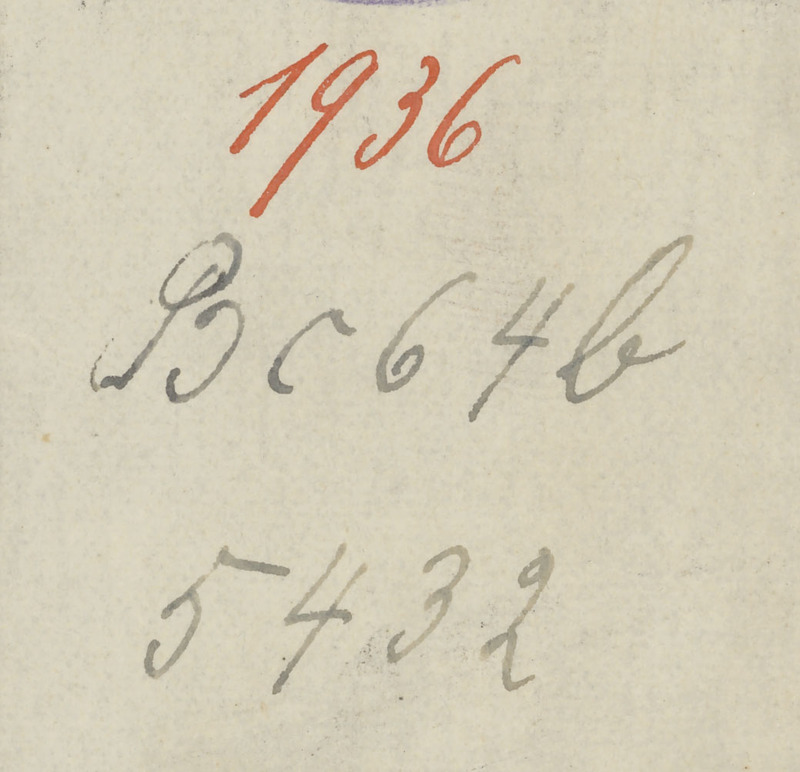 1936
Bc64b
5432